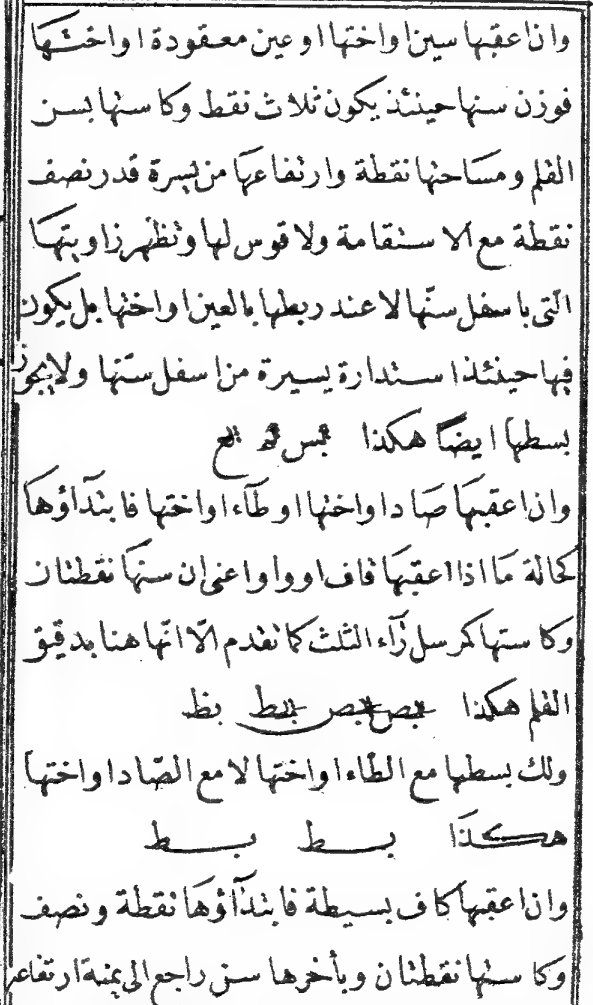 وان اعقبها سين او اختها او عين معقودة او اختها
فوزن سنها حينئذ يكون ثلاث نقط وكاستها بسن
القلم ومساحتها نقطة وارتفاعها من يسرة قدر نصف
نقطة مع الاستقامة ولا قوس لها وتظهر زاويتها
التي باسفل سنّها لا عند ربطها بالعين او اختها بل يكون
فيها حينئذ استدارة يسيرة من اسفل سنّها ولا يجوز
بسطها ايضًا هكذا
وان اعقبها صاد او اختها او طآء او اختها فابتدآؤها
كحالة ما اذا اعقبها قاف او واو اعني ان سنّها نقطتان
وكاستها كمرسل رآء الثلث كما تقدم الّا انّها هنا بدقيق
القلم هكذا بص بص بط بظ
ولك بسطها مع الطاء او اختها لا مع الصّاد او اختها
هكذا بط بط
وان اعقبها كاف بسيطة فابتدآؤها نقطة ونصف
وكاستها نقطتان وبأخرها سن راجع الى يمنة ارتفاعه